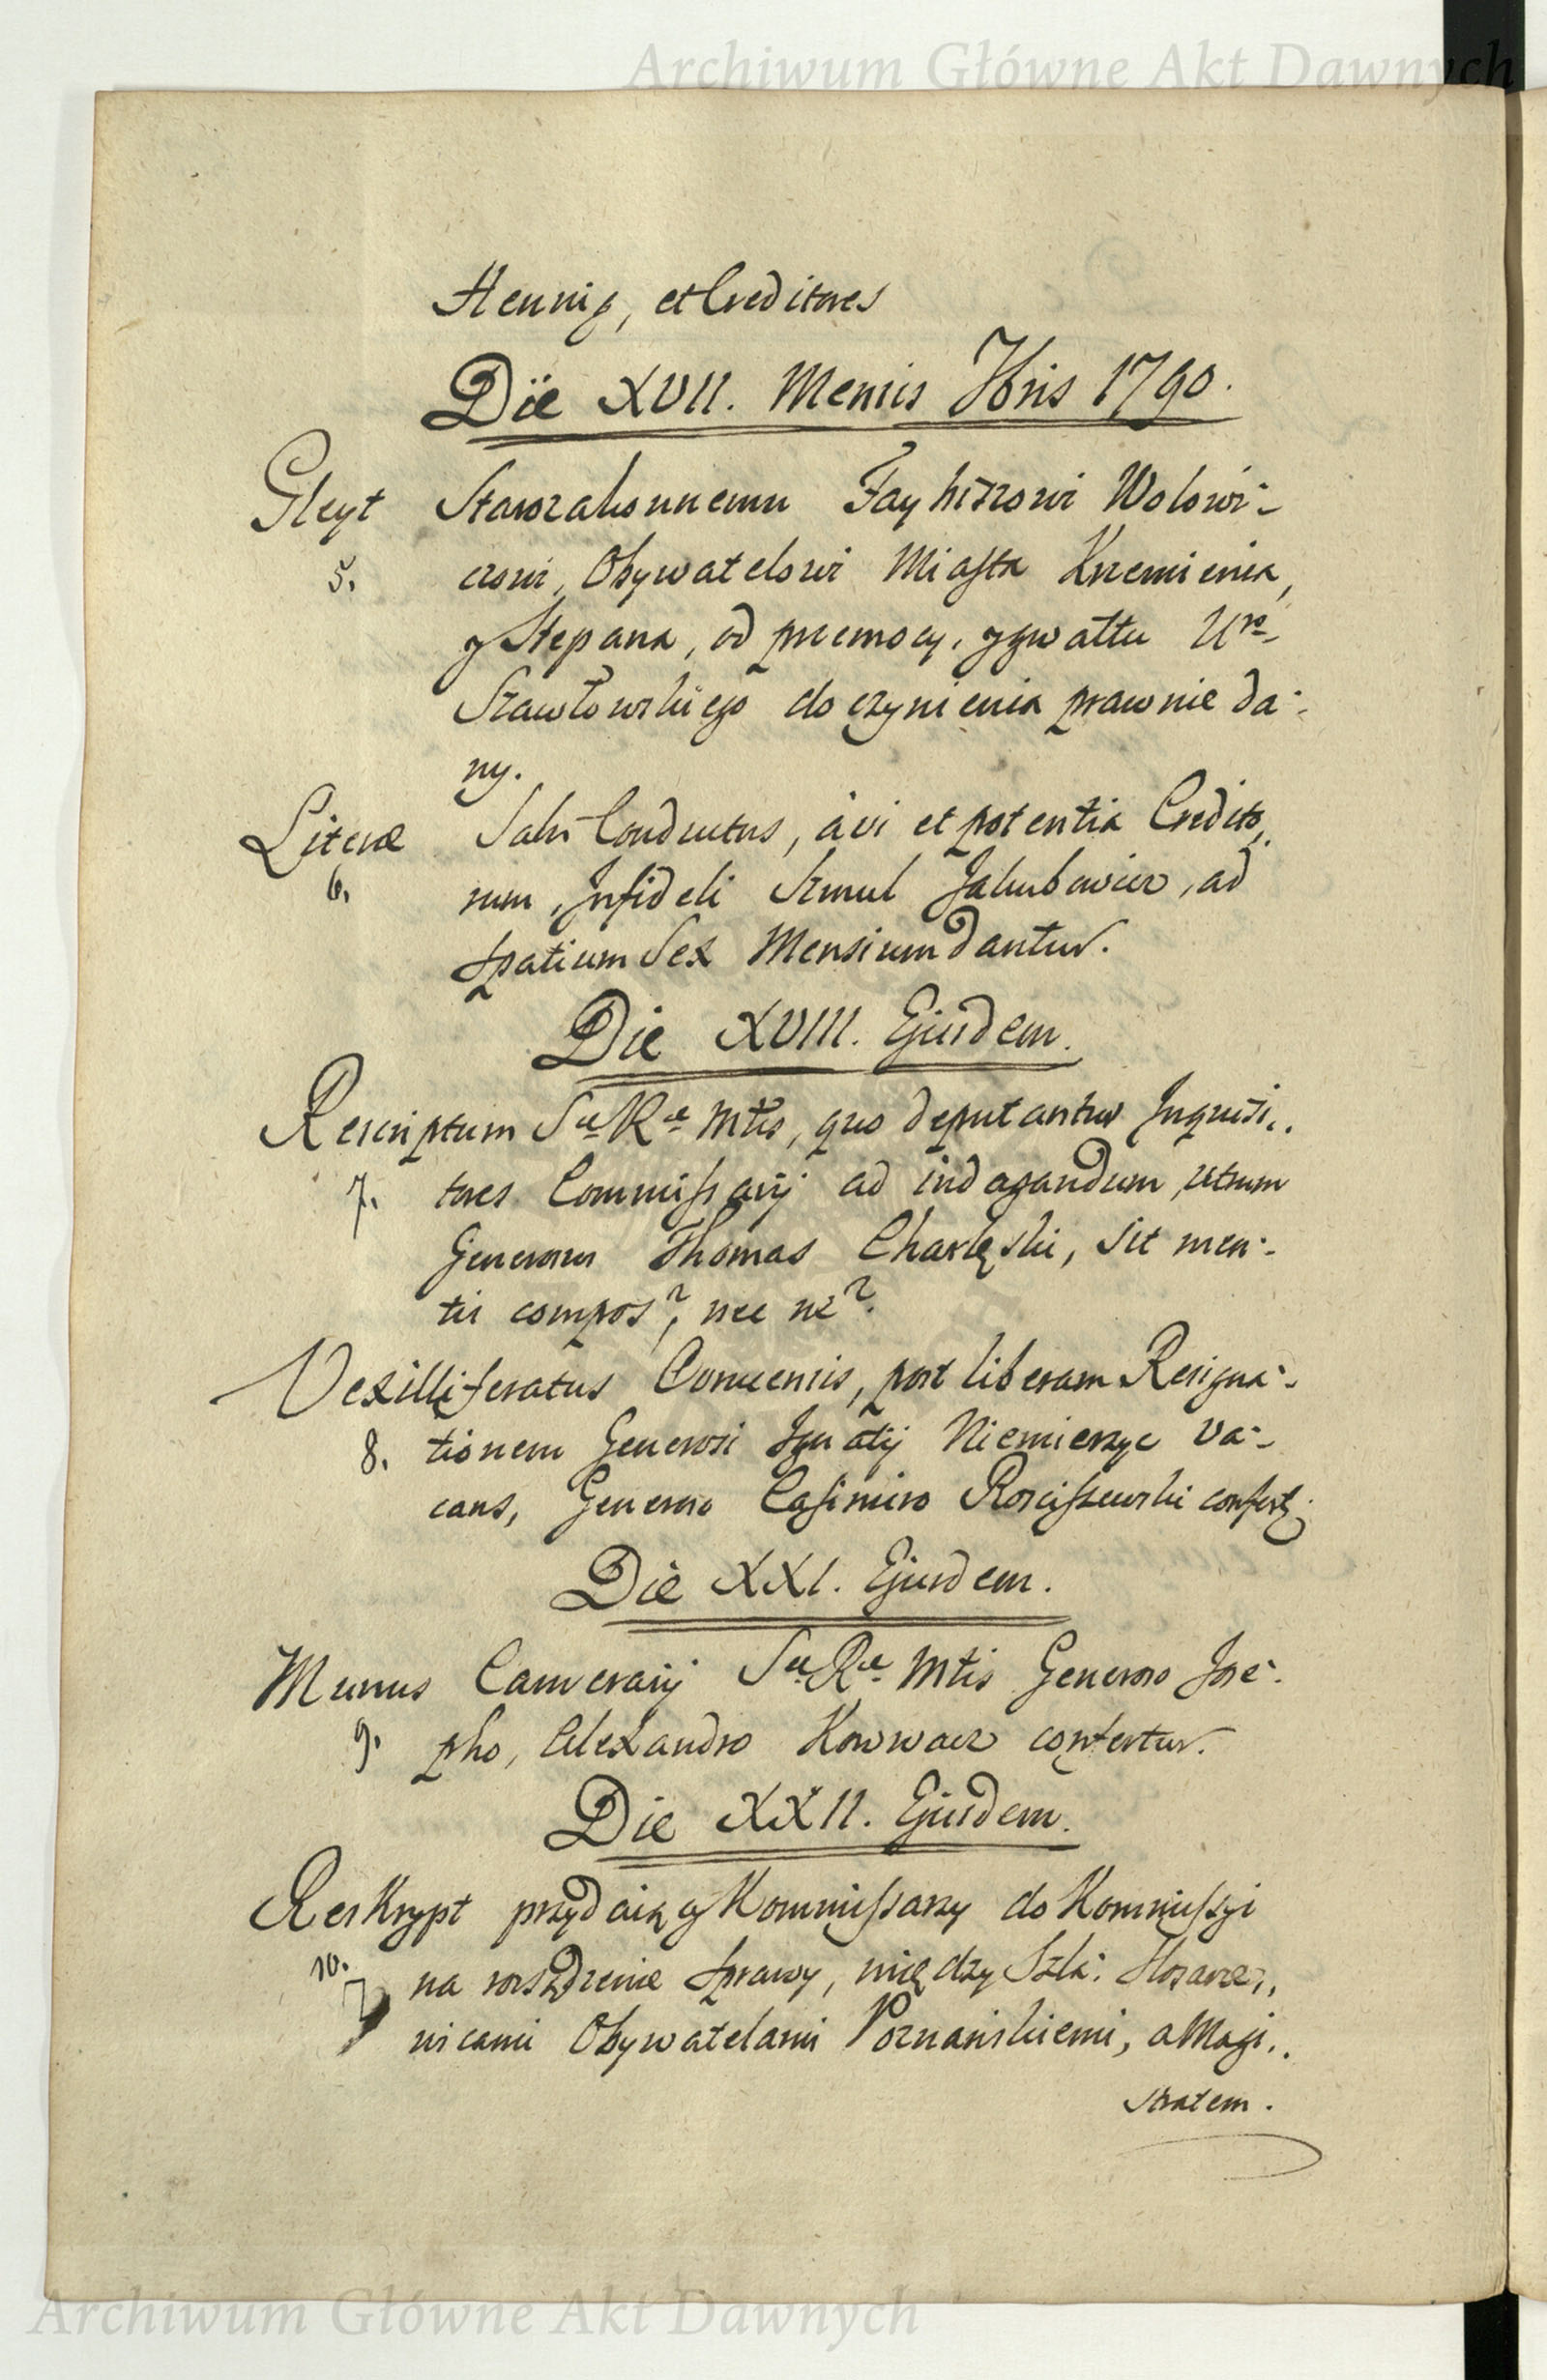 Archiwum Główne Akt Dawnych
Hennig, et Creditores
Die XVII. Mensis Xbris 1790.
Gleyt Starozakonnemu Faybiszowi Wolowi-
5. czowi, Obywatelowi Miasta Krzemienia,
y Stepana, od przemocy, y gwałtu Uro-
Szawłowskiego do czynienia prawnie da-
ny.
Literæ Salvi Conductus, à vi et potentia Credito,,
6. rum, Infideli Szmul Jakubowicz, ad
spatium Sex Mensium dantur.
Die XVIII. Ejusdem.
Rescriptum Sæ Ræ Mtis, quo deputantur Inquisi,,
7. tores Commissarij ad indagandum, utrum
Generosus Thomas Charlęski, sit men-
tis compos?, nec ne?.
Vexilliferatus Owrucensis, post liberam Resigna-
8. tionem Generosi Ignatij Niemierzyc va-
cans, Generoso Casimiro Rosciszewski confert.
Die XXI. Ejusdem.
Munus Camerarij Sæ Ræ Mtis Generoso Jose-
9. pho, Alexandro Korwacz confertur.
Die XXII. Ejusdem.
Reskrypt przydaiący Kommissarzy do Kommissyi
10. na rozsądzenie sprawy, między Szla:
nicami Obywatelami Poznańskiemi, a Magi,,
stratem.
Archiwum Główne Akt Dawnych